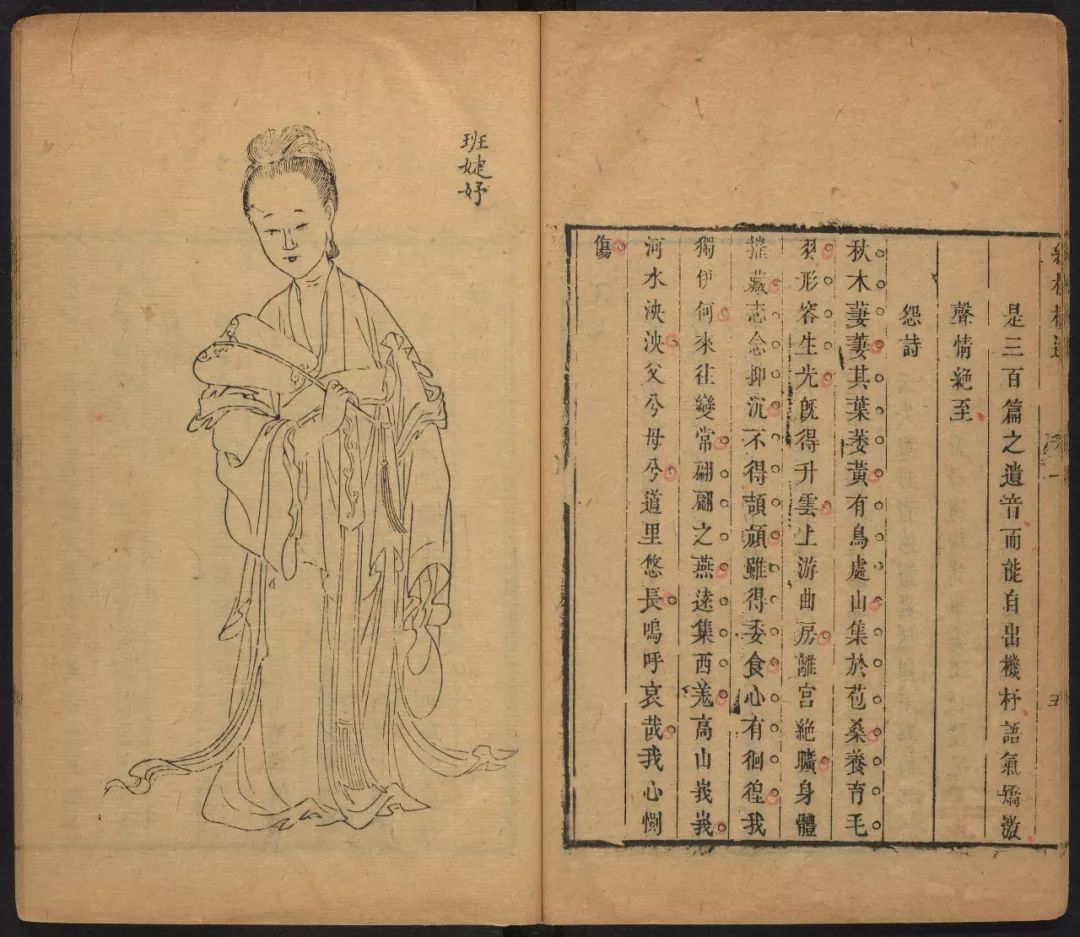 是三百篇之遺音而能自出機杼語氣矯激
聲情絕至
怨詩
秋木萋萋其葉萎黃有鳥處山集於苞桑養育毛
羽形容生光既得升雲上游曲房離宮絕曠身體
摧藏志念抑沉不得頡頏雖得委食心有徊徨我
獨伊何來往變常翩翩之燕遠集西羗高山峩峩
河水泱泱父兮母兮道里悠長嗚呼哀哉我心惻
傷
班婕妤